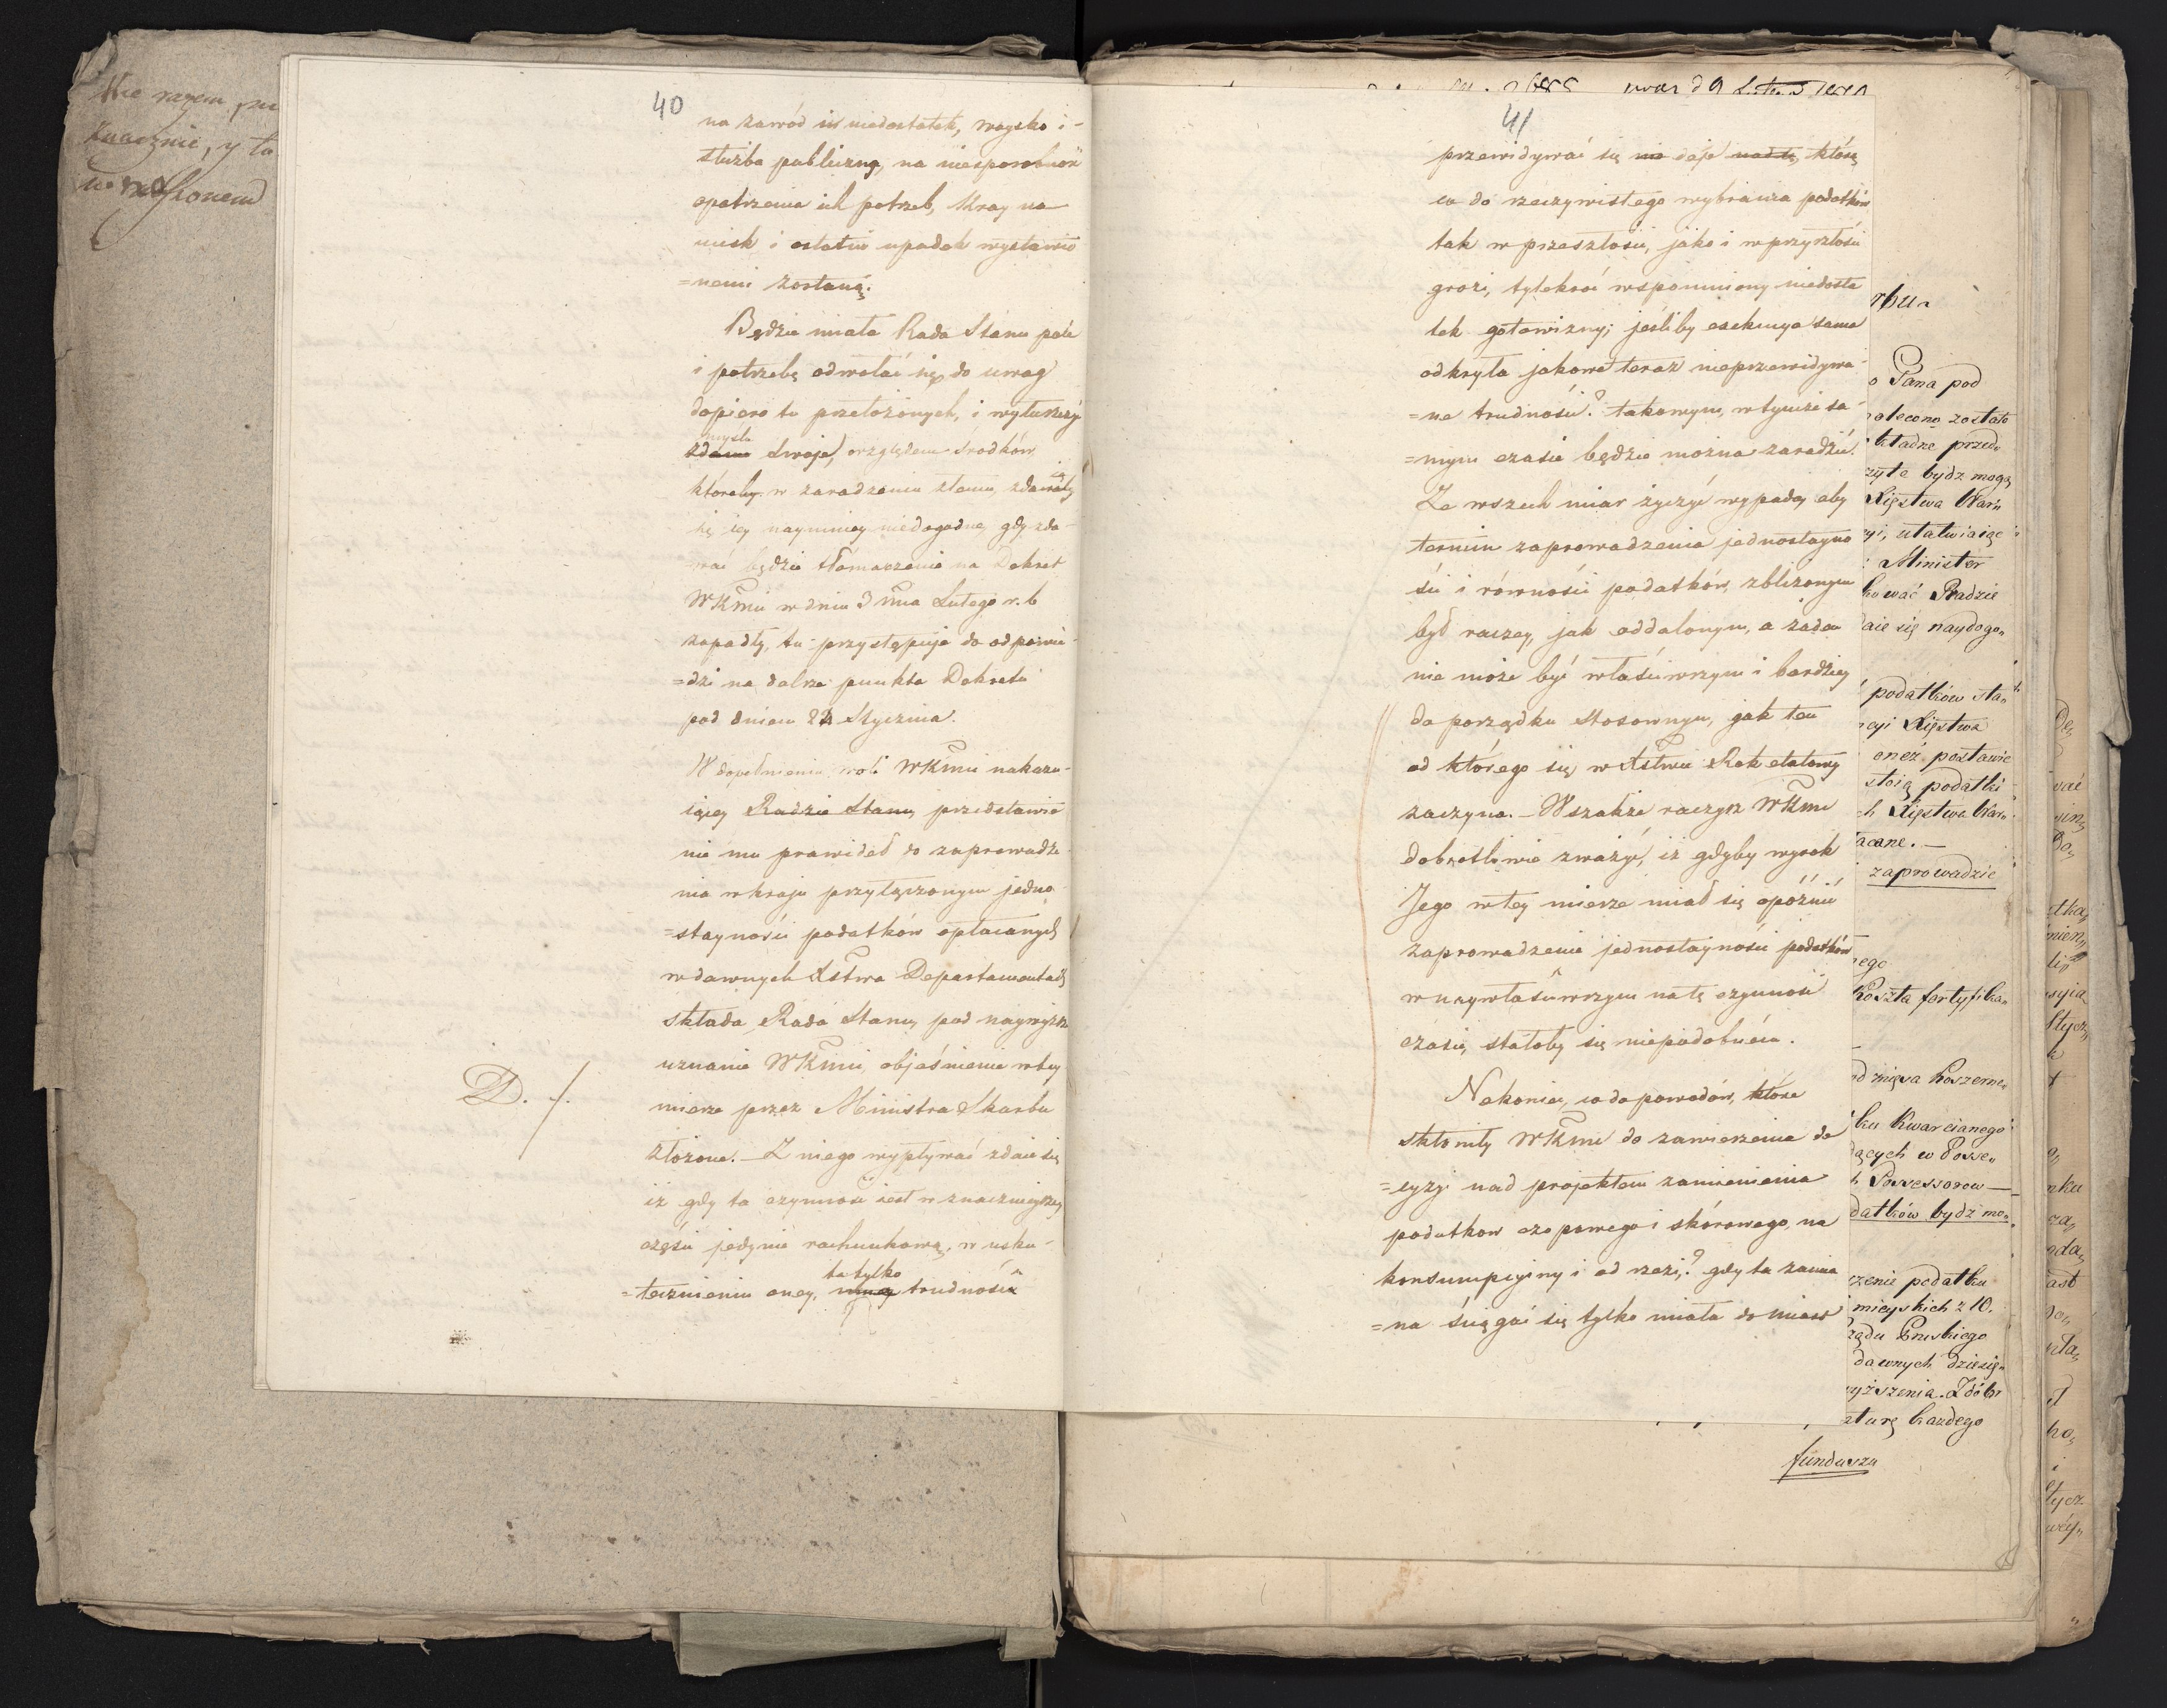 Nie razem,
znacznie, y to
40
na zawód ich niedostatek, woysko i
służba publiczna, na niesposobność
opatrzenia ich potrzeb, Kray na
ucisk i ostatni upadek wystawio
=nemi zostaną.
Będzie miała Rada Stanu pole
i potrzebę odwołać się do uwag
dopiero tu przełożonych, i wyłuszczyć
myśli
zdanie swoje, względem środków
któreby w zaradzeniu złemu, zdawały
się iey naymniey niedogodne, gdy zda-
wać będzie tłómaczenie na Dekret
WKMci w dniu 3 mca Lutego r. b
zapadły, tu przystępuje do odpowie
=dzi na dalsze punkta Dekretu
pod dniem 24 Stycznia.
W dopełnieniu woli WKMci nakazu-
iącey Radzie Stanu, przedstawie
nie mu prawideł do zaprowadze
nia w kraju przyłączonym jedno
=stayności podatków opłacanych
w dawnych Xstwa Departamentach
składa Rada Stanu, pod naywyższe
uznanie WKMci, objaśnienie w tey
D. /.
mierze przez Ministra Skarbu
złożone. – Z niego wypływać zdaie się
iż gdy ta czynność iest w znacznieyszey
części jedynie rachunkową, w usku-
ta tylko
=tecznieniu oney, inney trudność
41
przewidywać się nie daje nad tę, którą
co do rzeczywistego wybrania podatków
tak w przeszłości, jako i w przyszłości
grozi, tylekroć wspomniony niedosta
tek gotowizny; jeśliby exekucya sama
odkryła jakowe teraz nieprzewidywa-
=ne trudności? takowym, w tymże sa-
=mym czasie będzie można zaradzić.
Ze wszech miar życzyć wypada, aby
termin zaprowadzenia jednostayno
ści i równości podatków, zbliżonym
był raczey, jak oddalonym, a żaden
nie może być właściwszym i bardziey
do porządku stosownym, jak ten
od którego się w Xstwie Rok etatowy
zaczyna. – Wszakże raczysz WKMć
dobrotliwie zważyć, iż gdyby wyrok
Jego w tey mierze miał się opóźnić
zaprowadzenie jednostayności podatków
w naywłaściwszym na tę czynność
czasie, stałoby się niepodobném.
Nakoniec, co do powodów, które
skłoniły WKMć do zawieszenia de
=cyzyi nad projektem zamienienia
podatków czopowego i skórowego, na
konsumpcyjny i od rzezi,? gdy ta zamia
=na ściągać się tylko miała do miast
rbu
o Pana pod
olecono zostało
kładne przed
zyte bydz mogą
Xięstwa War
yi, ułatwiaiąc
Minister
kować Radzie
daie się naydogo
podatków sta
cyi Xięstwa
oneż postawić
stoią podatki
ch Xięstwa War
acane. –
zaprowadzić
ego
Koszta fortyfika
od mięsa koszerne
ku Kwarcianego
ących w Posse
Possessorow –
datków bydz mo
czenie podatku
mieyskich z 10.
ządu Pruskiego
dawnych dziesię
yższenia. Z dóbr
aturę każdego
fundusza